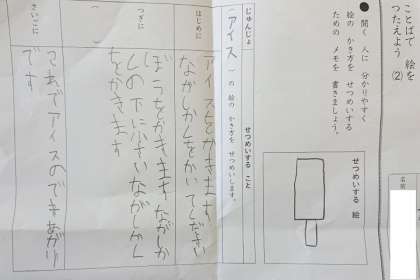 ことばで 絵を
つたえよう (2)
● 聞く 人に 分かりやすく
絵の かき方を せつめいする
ための メモを 書きましょう。
せつめいする 絵
名前
じゅんじょ
せつめいする こと
(アイス)の 絵の かき方を せつめいします。
はじめに
アイスをかきます。
ながしかくをかいてください
つぎに
ぼうをかきます ながしか
くの下に小さいながしかく
をかきます
さいごに
これでアイスのできあがり
です